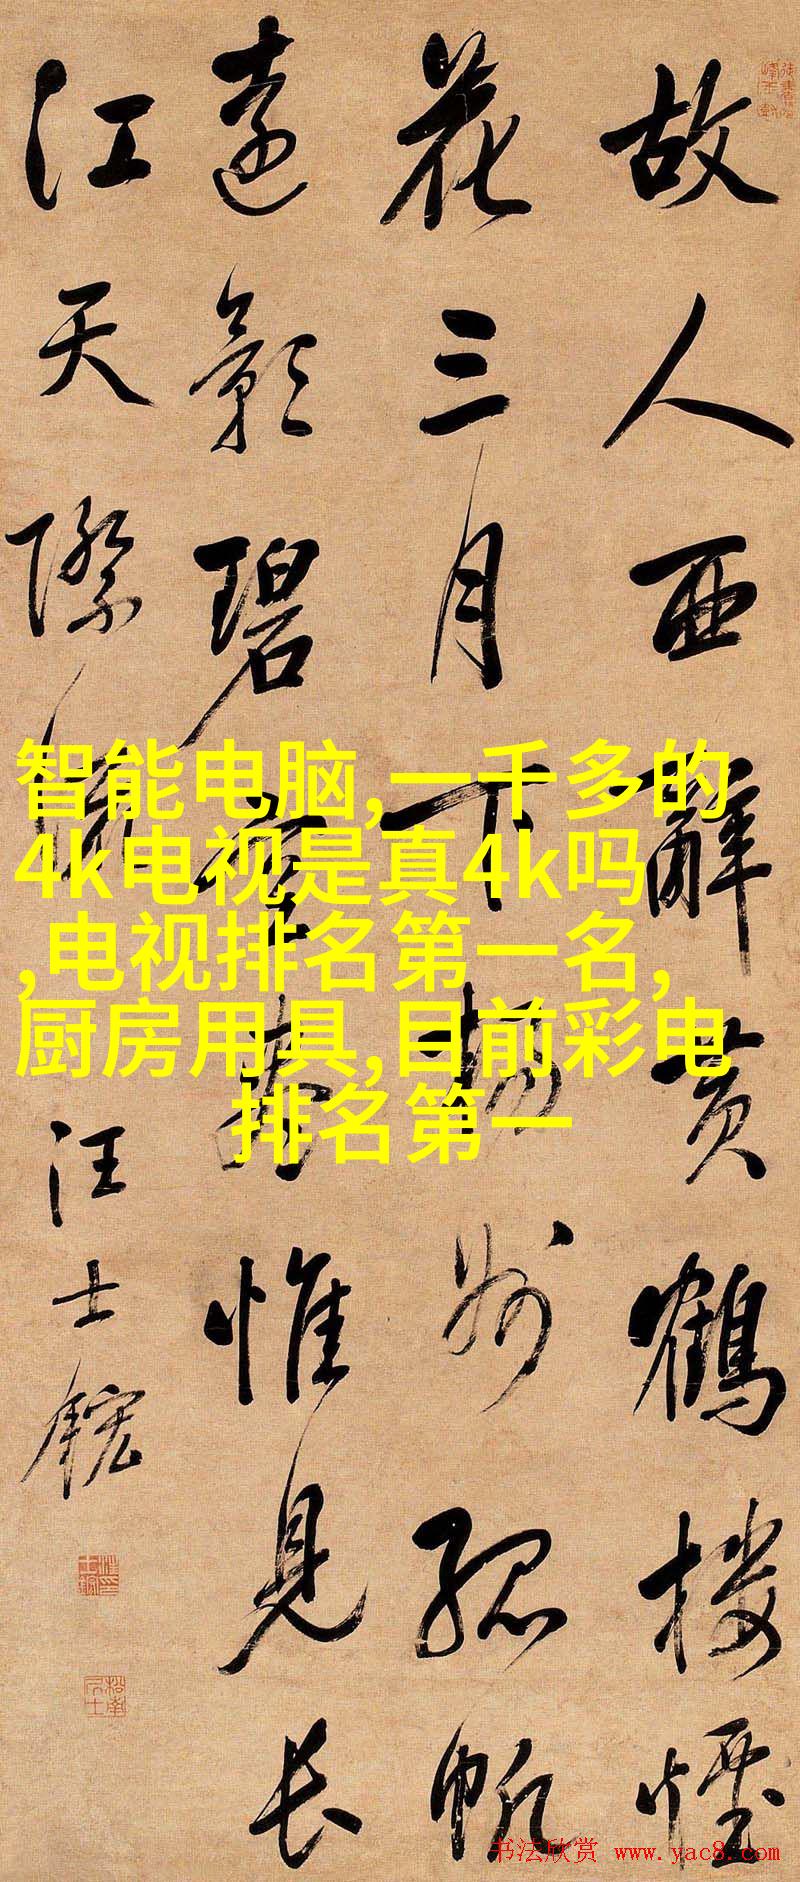 故人西辞黄鹤楼煙
花三月下扬州孤帆
遠影碧空盡惟見长
江天際流
汪士鋐
智能电脑,一千多的
4k电视是真4k吗
,电视排名第一名,
厨房用具,目前彩电
排名第一
书法欣赏 www.yac8.com